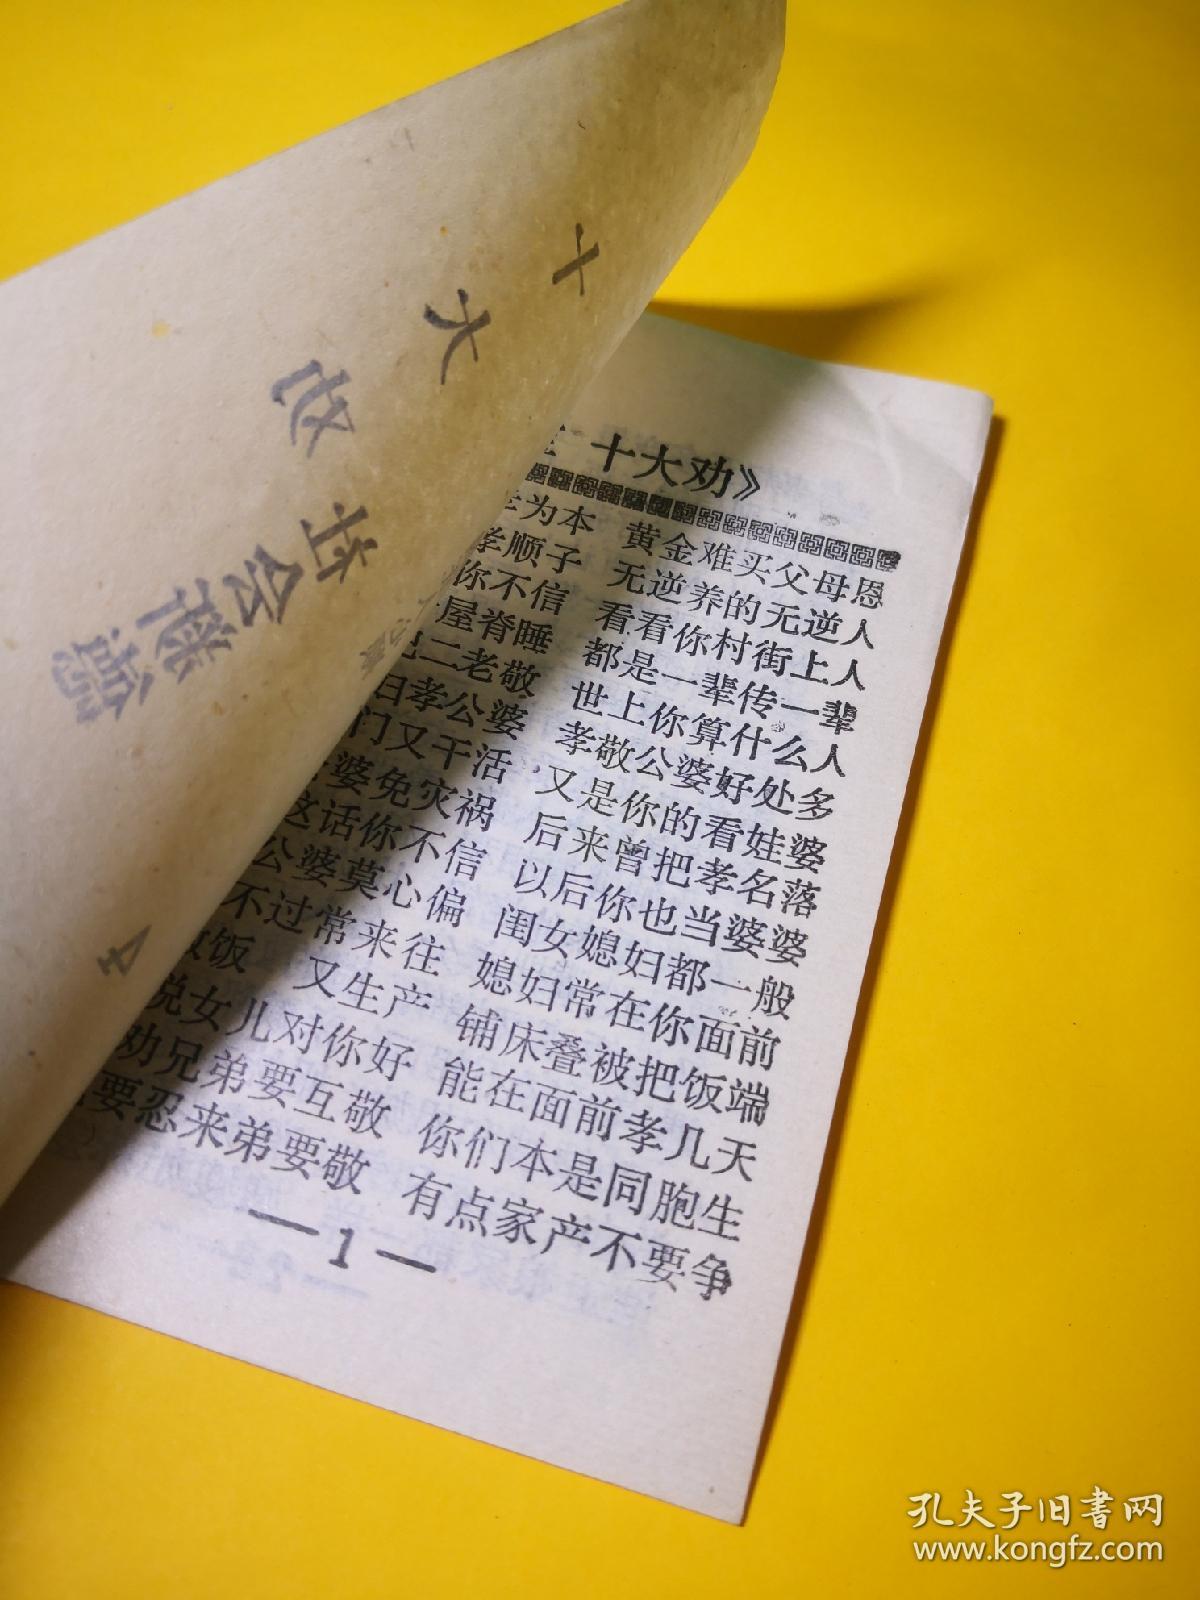 十大劝》
为本 黄金难买父母恩
孝顺子 无逆养的无逆人
你不信 看看你村街上人
屋脊睡 都是一辈传一辈
二老敬 世上你算什么人
妇孝公婆 孝敬公婆好处多
门又干活 又是你的看娃婆
婆免灾祸 后来曾把孝名落
这话你不信 以后你也当婆婆
公婆莫心偏 闺女媳妇都一般
不过常来往 媳妇常在你面前
做饭 又生产 铺床叠被把饭端
说女儿对你好 能在面前孝几天
劝兄弟要互敬 你们本是同胞生
要忍来弟要敬 有点家产不要争
—1—
孔夫子旧书网
www.kongfz.com